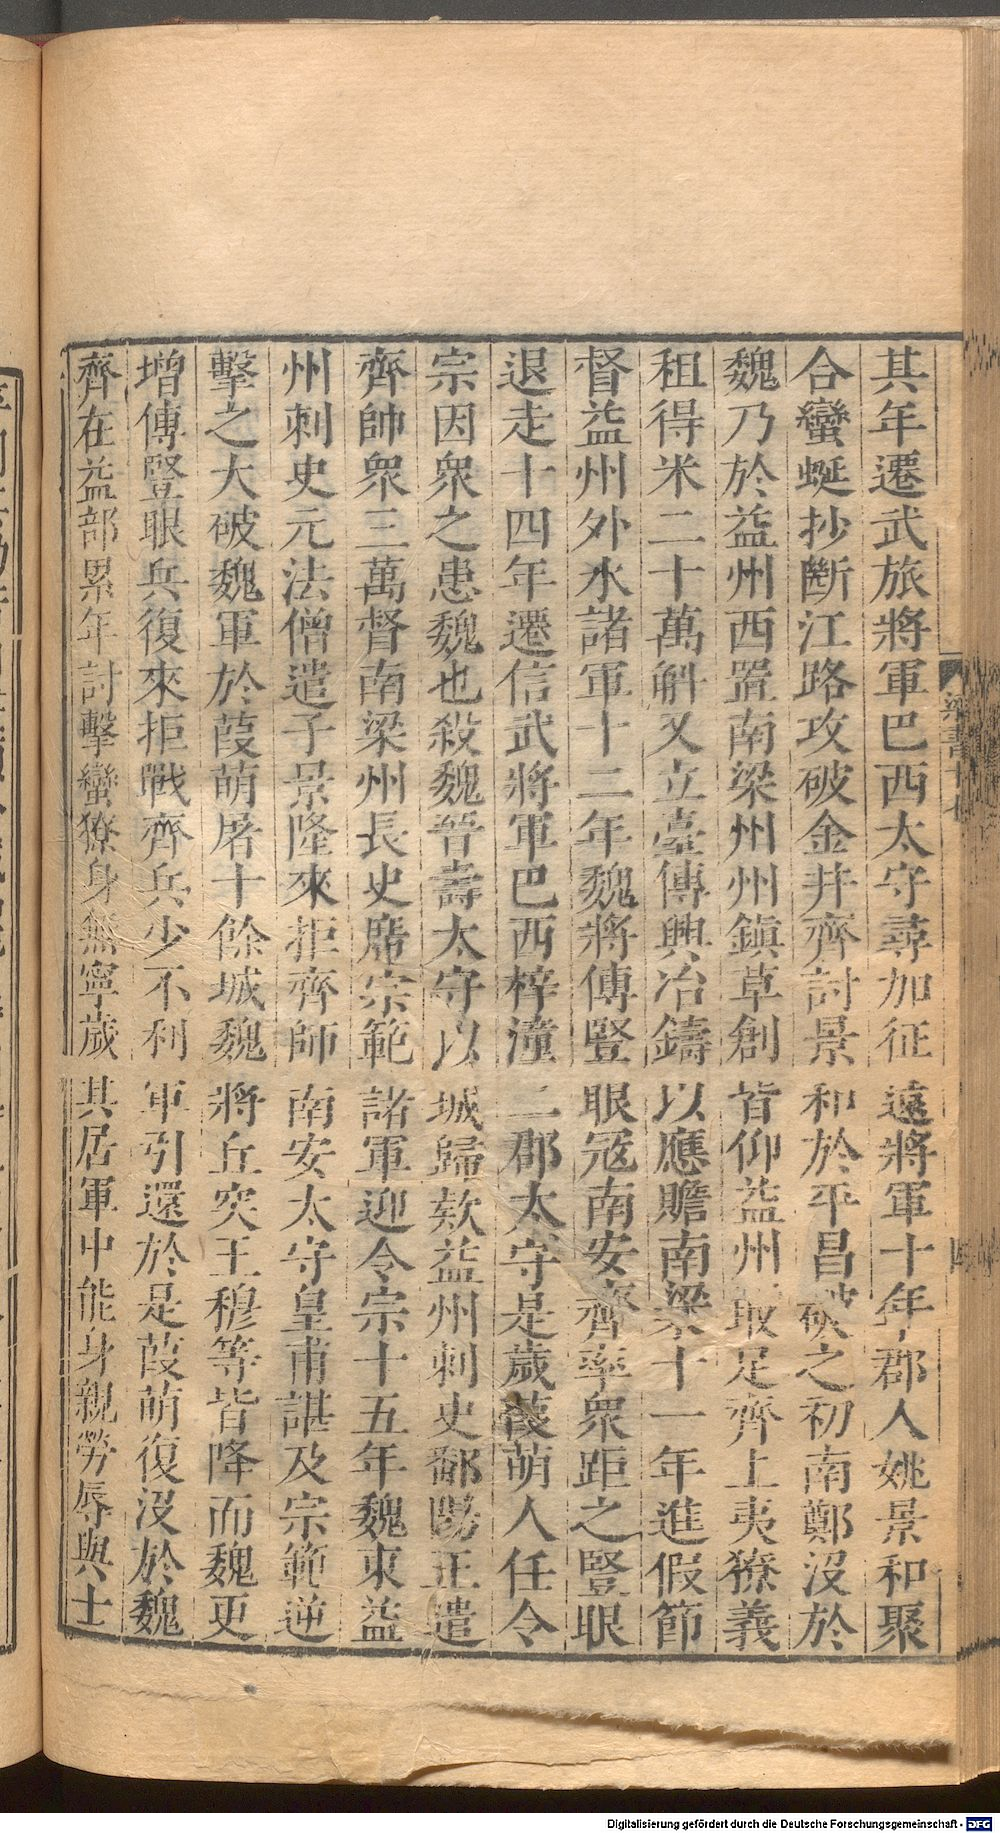 其年遷武旅將軍巴西太守尋加征遠將軍十年郡人姚景和聚
合蠻蜒抄斷江路攻破金井齊討景和於平昌破之初南鄭沒於
魏乃於益州西置南梁州州鎮草創皆仰益州取足齊上夷獠義
租得米二十萬斛又立臺傳興冶鑄以應贍南梁十一年進假節
督益州外水諸軍十二年魏將傅豎眼寇南安齊率眾距之豎眼
退走十四年遷信武將軍巴西梓潼二郡太守是歲葭萌人任令
宗因衆之患魏也殺魏晉壽太守以城歸欵益州刺史鄱陽王遣
齊帥衆三萬督南梁州長史席宗範諸軍迎令宗十五年魏東益
州刺史元法僧遣子景隆來拒齊師南安太守皇甫諶及宗範逆
擊之大破魏軍於葭萌屠十餘城魏將丘突王穆等皆降而魏更
增傅豎眼兵復來拒戰齊兵少不利軍引還於是葭萌復沒於魏
齊在益部累年討擊蠻獠身無寧歲其居軍中能身親勞辱與士
梁書十七
四
Digitalisierung gefördert durch die Deutsche Forschungsgemeinschaft - DFG